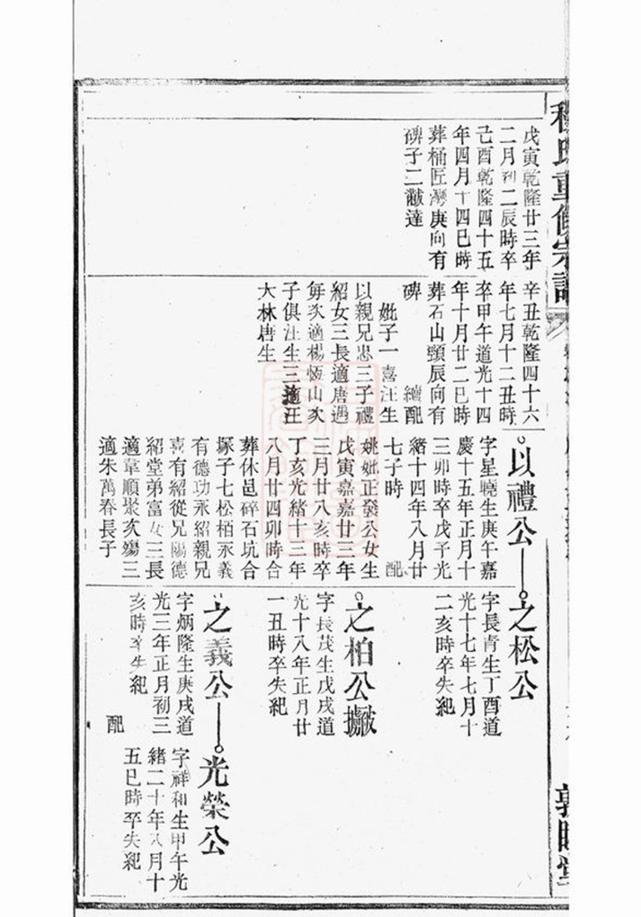 氏重修宗譜
戊寅乾隆廿三年
二月初二辰時卒
己酉乾隆四十五
年四月十四巳時
葬桶匠灣庚向有
碑子二黻達
辛丑乾隆四十六
年七月十二丑時
卒甲午道光十四
年十月廿二巳時
葬石山頸辰向有
碑
繼配
妣子一喜汪生
以親兄忠三子禮
紹女三長適唐遇
毎次適楊恆山次
子俱汪生三適汪
大林唐生
以禮公
字星曉生庚午嘉
慶十五年正月十
三卯時卒戊子光
緒十四年八月廿
七子時
配
姚妣正發公女生
戊寅嘉嘉廿三年
三月廿八亥時卒
丁亥光緒十三年
八月廿四卯時合
葬休邑碎石坑合
塚子七松栢永義
有德功永紹親兄
喜有紹從兄陽德
紹堂弟富女三長
適章順聚次殤三
適朱萬春長子
之松公
字長青生丁酉道
光十七年七月十
二亥時卒失紀
之柏公
字長茂生戊戌道
光十八年正月廿
一丑時卒失紀
之義公
字炳隆生庚戌道
光三年正月初三
亥時卒失紀
配
光榮公
字祥和生甲午光
緒二十年八月十
五巳時卒失紀
敦睦堂